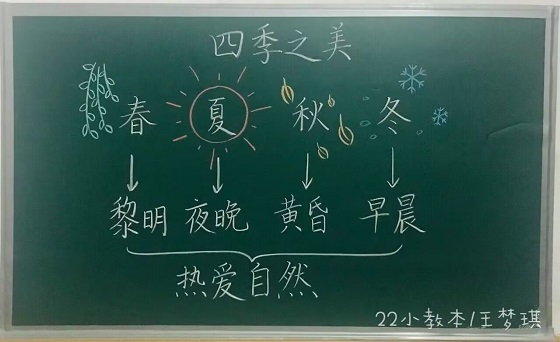 四季之美
春 夏 秋 冬
黎明 夜晚 黄昏 早晨
热爱自然
22小教本/王梦琪